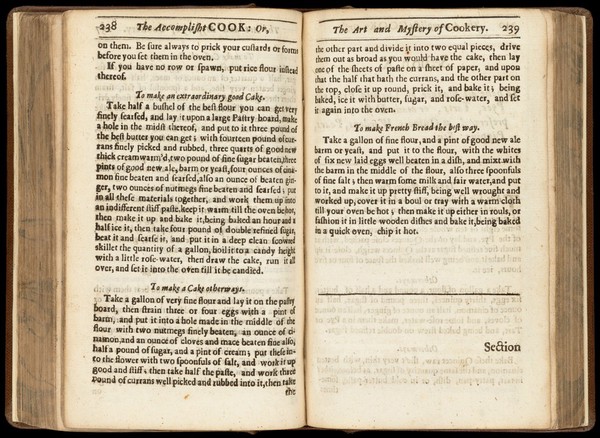 238 The Accomplisht COOK: Or,
on them. Be sure always to prick your custards or forms
before you set them in the oven.
If you have no row or spawn, put rice flour instead
thereof.
To make an extraordinary good Cake.
Take half a bushel of the best flour you can get very
finely searsed, and lay it upon a large Pastry board, make
a hole in the midst thereof, and put to it three pound of
the best butter you can get; with fourteen pound of cur-
rans finely picked and rubbed, three quarts of good new
thick cream warm'd, two pound of fine sugar beaten, three
pints of good new ale, barm or yeast, four ounces of cina-
mon fine beaten and searsed, also an ounce of beaten gin-
ger, two ounces of nutmegs fine beaten and searsed; put
in all these materials together, and work them up into
an indifferent stiff paste, keep it warm till the oven be hot,
then make it up and bake it, being baked an hour and a
half ice it, then take four pound of double refined sugar,
beat it and searse it, and put it in a deep clean scowred
skillet the quantity of a gallon, boil it to a candy height
with a little rose-water, then draw the cake, run it all
over, and set it into the oven till it be candied.
To make a Cake otherways.
Take a gallon of very fine flour and lay it on the pastry
board, then strain three or four eggs with a pint of
barm, and put it into a hole made in the middle of the
flour with two nutmegs finely beaten, an ounce of ci-
namon, and an ounce of cloves and mace beaten fine also,
half a pound of sugar, and a pint of cream; put these in-
to the flower with two spoonfuls of salt, and work it up
good and stiff, then take half the paste, and work three
pound of currans well picked and rubbed into it, then take
the
The Art and Mystery of Cookery. 239
the other part and divide it into two equal pieces, drive
them out as broad as you would have the cake, then lay
one of the sheets of paste on a sheet of paper, and upon
that the half that hath the currans, and the other part on
the top, close it up round, prick it, and bake it; being
baked, ice it with butter, sugar, and rose-water, and set
it again into the oven.
To make French Bread the best way.
Take a gallon of fine flour, and a pint of good new ale
barm or yeast, and put it to the flour, with the whites
of six new laid eggs well beaten in a dish, and mixt with
the barm in the middle of the flour, also three spoonfuls
of fine salt; then warm some milk and fair water, and put
to it, and make it up pretty stiff, being well wrought and
worked up, cover it in a boul or tray with a warm cloth
till your oven be hot; then make it up either in rouls, or
fashion it in little wooden dishes and bake it, being baked
in a quick oven, chip it hot.
Section